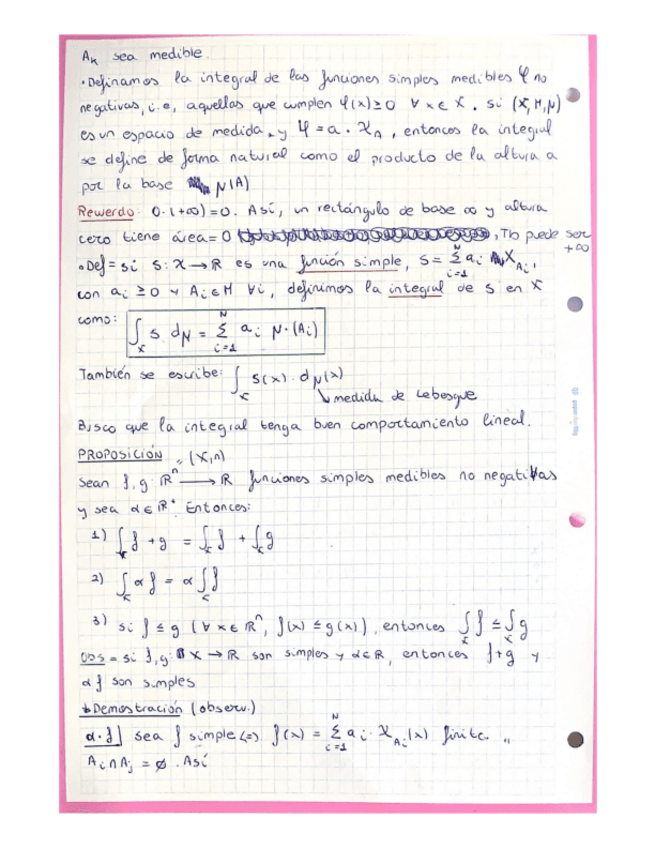 Ak sea medible.
• Definamos la integral de las funciones simples medibles φ no
negativas, i.e, aquellas que cumplen φ(x) ≥ 0 ∀ x ∈ X. Si (X, M, μ)
es un espacio de medida, y φ = a · χ_A, entonces la integral
se define de forma natural como el producto de la altura a
por la base μ(A)
Rewerdo: 0·(+∞)=0. Así, un rectángulo de base ∞ y altura
cero tiene área = 0, no puede ser
+∞
• Def = si s: X → ℝ es una función simple, s = Σ_{i=1}^{N} a_i χ_{A_i},
con a_i ≥ 0 y A_i ∈ M ∀i, definimos la integral de s en X
como: ∫_X s dμ = Σ_{i=1}^{N} a_i μ·(A_i)
También se escribe: ∫_X s(x) · dμ(x)
↘ medida de Lebesgue
Busco que la integral tenga buen comportamiento lineal.
PROPOSICIÓN
Sean f, g: ℝ^n → ℝ funciones simples medibles no negativas
y sea α ∈ ℝ⁺ Entonces:
1) ∫_X f + g = ∫_X f + ∫_X g
2) ∫_X α f = α ∫_X f
3) si f ≤ g (∀ x ∈ ℝ^n, f(x) ≤ g(x)), entonces ∫_X f ≤ ∫_X g
OBS = si f, g: X → ℝ son simples y α ∈ ℝ, entonces f+g y
α f son simples
* Demostración (observ.)
α·f] sea f simple <=> f(x) = Σ_{i=1}^{N} a_i · χ_{A_i}(x) finita.
A_i ∩ A_j = ∅. Así